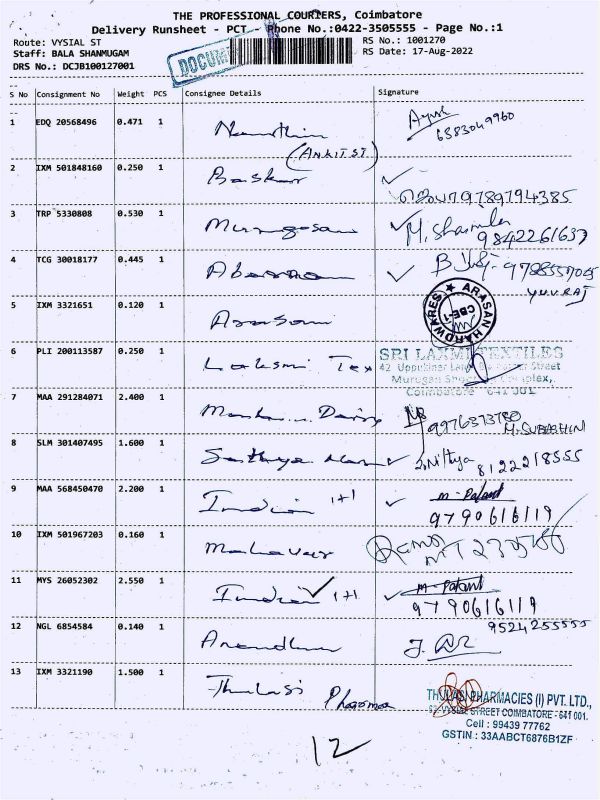 THE PROFESSIONAL COURIERS, Coimbatore
Delivery Runsheet - PCT - Phone No.:0422-3505555 - Page No.:1
Route: VYSIAL ST RS No.: 1001270
Staff: BALA SHANMUGAM RS Date: 17-Aug-2022
DRS No.: DCJB100127001
DOCUM
S No Consignment No Weight PCS Consignee Details Signature
1 EDQ 20568496 0.471 1 6383049960
(ANKIT ST)
2 IXM 501848160 0.250 1 Baskar 9789794385
3 TRP 5330808 0.530 1 Murugesan M. Sharmila
9842261637
4 TCG 30018177 0.445 1
YUVRAJ
5 IXM 3321651 0.120 1 ARASAN HARDWARES CBE-1
6 PLI 200113587 0.250 1 Laksmi Tex SRI LAXMI TEXTILES
Street
Murugan Complex,
Coimbatore
7 MAA 291284071 2.400 1 9976373780
M. SUBASHINI
8 SLM 301407495 1.600 1 Nithya 8122218555
9 MAA 568450470 2.200 1 Indian
9790616119
10 IXM 501967203 0.160 1 Mahaveer
11 MYS 26052302 2.550 1 Indian
9790616119
12 NGL 6854584 0.140 1 9524255555
13 IXM 3321190 1.500 1 Thulasi Pharma THULASI PHARMACIES (I) PVT. LTD.,
62, VYSIAL STREET COIMBATORE - 641 001.
Cell : 99439 77762
GSTIN : 33AABCT6876B1ZF
12